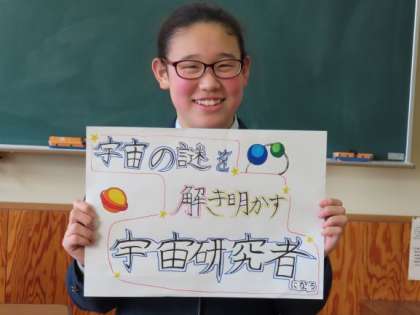 宇宙の謎を
解き明かす
宇宙研究者
になる